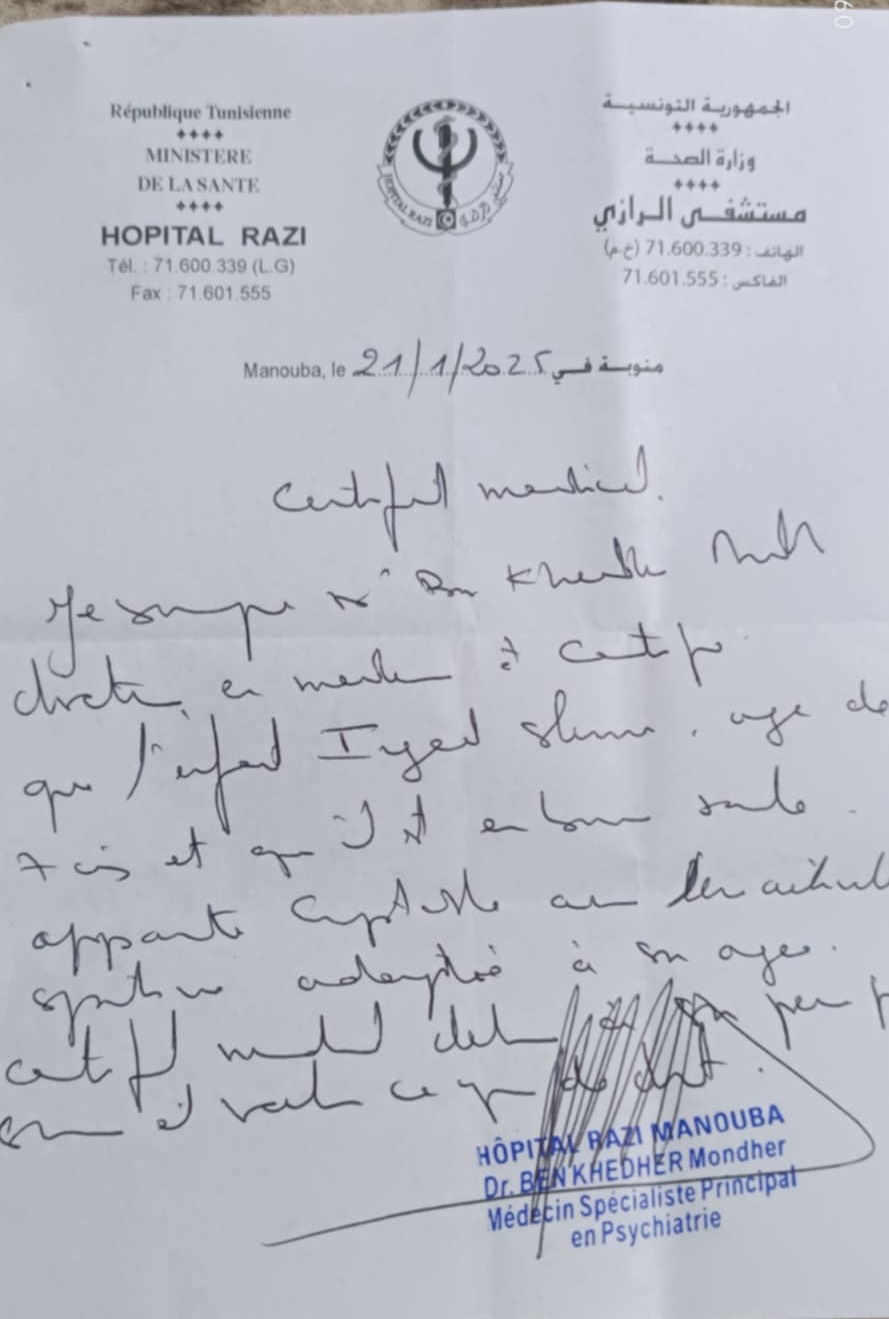 République Tunisienne
MINISTERE
DE LA SANTE
HOPITAL RAZI
Tél. : 71.600.339 (L.G)
Fax : 71.601.555
HOPITAL RAZI
الجمهورية التونسية
وزارة الصحة
مستشفى الرازي
الهاتف : 71.600.339 (خ.م)
الفاكس : 71.601.555
Manouba, le 21/1/2025 منوبة في
Certificat medical.
Je soussigné Dr Ben Khedher
docteur en medecine à certifie
que l'enfant Iyed age de
7 ans et qu'il est en bonne sante
apparente compatible avec les activités
sportive adaptés à son age.
certificat medical
valoir ce que de droit.
HÔPITAL RAZI MANOUBA
Dr. BEN KHEDHER Mondher
Médecin Spécialiste Principal
en Psychiatrie
60